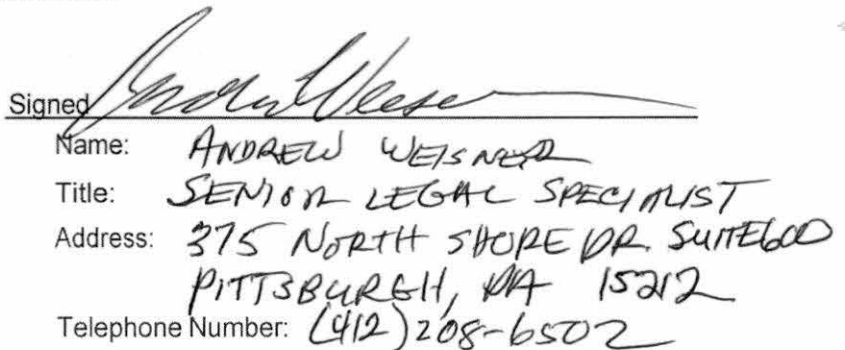 Signed
Name: ANDREW WEISNER
Title: SENIOR LEGAL SPECIALIST
Address: 375 NORTH SHORE DR. SUITE 600
PITTSBURGH, PA 15212
Telephone Number: (412) 208-6502